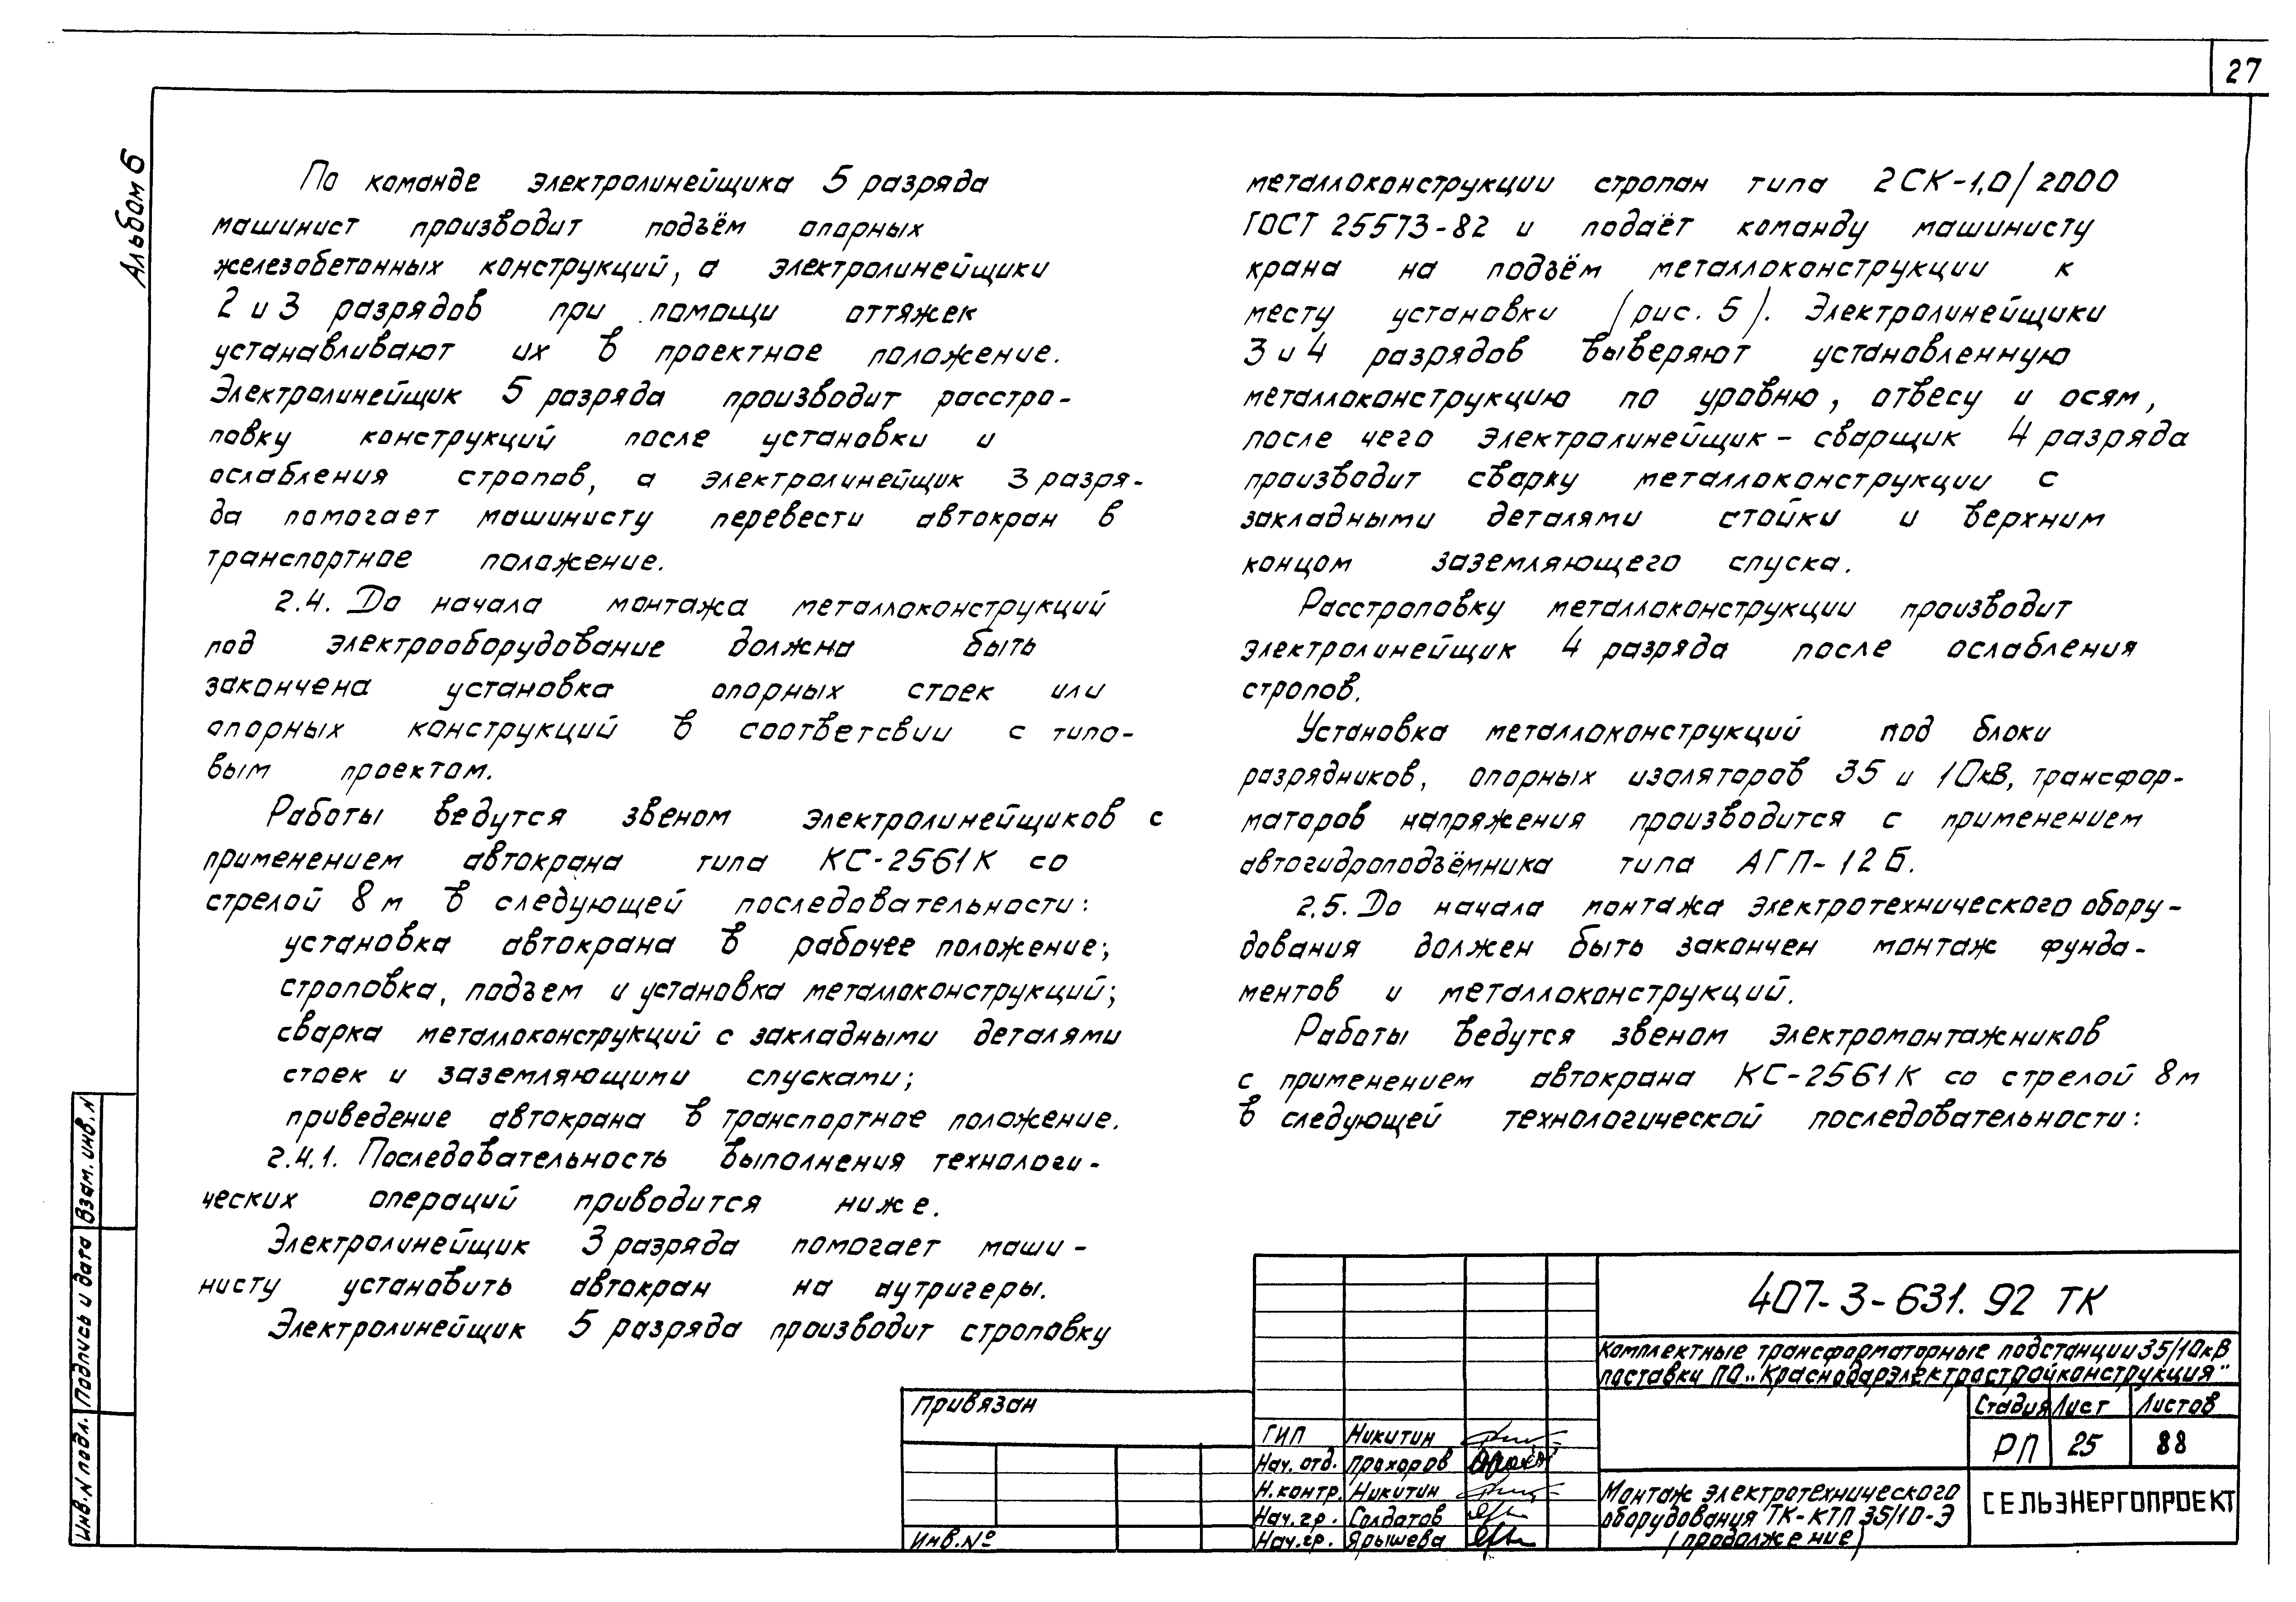 27
Альбом 6
По команде электролинейщика 5 разряда
машинист производит подъём опорных
железобетонных конструкций, а электролинейщики
2 и 3 разрядов при помощи оттяжек
устанавливают их в проектное положение.
Электролинейщик 5 разряда производит расстро-
повку конструкций после установки и
ослабления стропов, а электролинейщик 3 разря-
да помогает машинисту перевести автокран в
транспортное положение.
2.4. До начала монтажа металлоконструкций
под электрооборудование должна быть
закончена установка опорных стоек или
опорных конструкций в соответсвии с типо-
вым проектом.
Работы ведутся звеном электролинейщиков с
применением автокрана типа КС-2561К со
стрелой 8 м в следующей последовательности:
установка автокрана в рабочее положение;
строповка, подъем и установка металлоконструкций;
сварка металлоконструкций с закладными деталями
стоек и заземляющими спусками;
приведение автокрана в транспортное положение.
2.4.1. Последовательность выполнения технологи-
ческих операций приводится ниже.
Электролинейщик 3 разряда помогает маши-
нисту установить автокран на аутригеры.
Электролинейщик 5 разряда производит строповку
металлоконструкции стропан типа 2СК-1,0/2000
ГОСТ 25573-82 и подаёт команду машинисту
крана на подъём металлоконструкции к
месту установки (рис. 5). Электролинейщики
3 и 4 разрядов выверяют установленную
металлоконструкцию по уровню, отвесу и осям,
после чего электролинейщик - сварщик 4 разряда
производит сварку металлоконструкции с
закладными деталями стойки и верхним
концом заземляющего спуска.
Расстроповку металлоконструкции производит
электролинейщик 4 разряда после ослабления
стропов.
Установка металлоконструкций под блоки
разрядников, опорных изоляторов 35 и 10кВ, трансфор-
маторов напряжения производится с применением
автогидроподъёмника типа АГП-12Б.
2.5. До начала монтажа электротехнического обору-
дования должен быть закончен монтаж фунда-
ментов и металлоконструкций.
Работы ведутся звеном электромонтажников
с применением автокрана КС-2561К со стрелой 8м
в следующей технологической последовательности:
Взам. инв. N
Подпись и дата
Инв. N подл.
Привязан
Инв. №
ГИП Никитин
Нач. отд. Прохоров
Н.контр. Никитин
Нач. гр. Солдатов
Нач. гр. Ярышева
407-3-631.92 ТК
Комплектные трансформаторные подстанции 35/10кВ
поставки ПО „Краснодарэлектростройконструкция"
Стадия Лист Листов
РП 25 88
Монтаж электротехнического
оборудования ТК-КТП 35/10-Э
(продолжение)
СЕЛЬЭНЕРГОПРОЕКТ